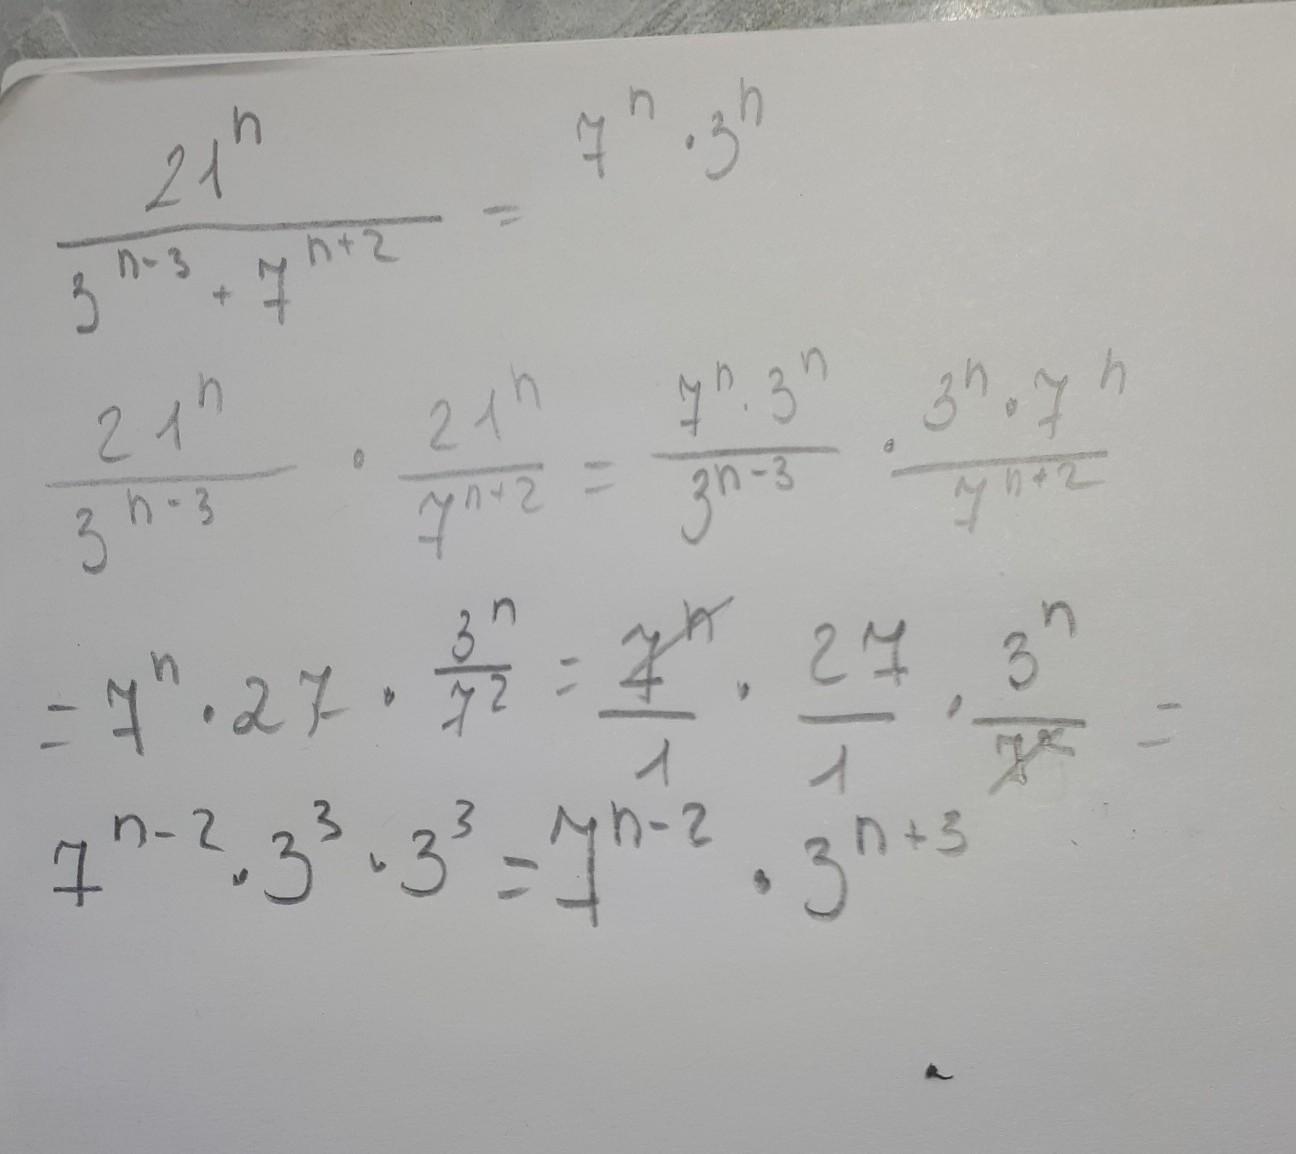 21^n / (3^(n-3) + 7^(n+2)) = 7^n · 3^n
21^n / 3^(n-3) · 21^n / 7^(n+2) = (7^n · 3^n) / 3^(n-3) · (3^n · 7^n) / 7^(n+2)
= 7^n · 27 · 3^n / 7^2 = 7^n / 1 · 27 / 1 · 3^n / 7^2 =
7^(n-2) · 3^3 · 3^3 = 7^(n-2) · 3^(n+3)